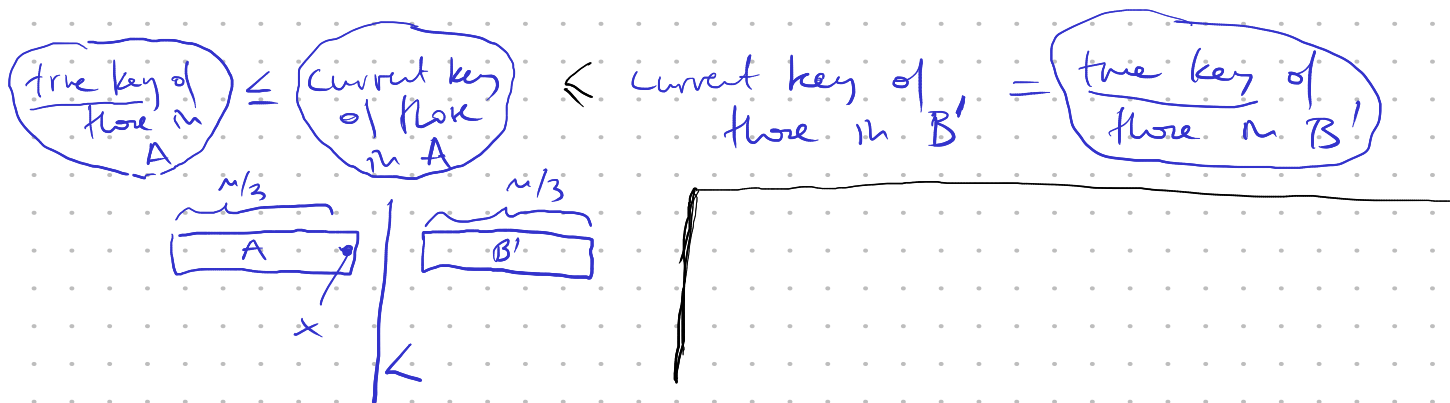 true key of those in A ≤ current key of those in A < current key of those in B' = true key of those in B'
n/3 n/3
A B'
x
<